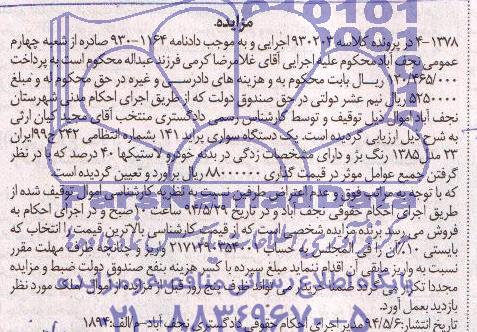 مزایده
۴-۱۳۷۸ در پرونده کلاسه ۹۳۰۲۰۳ اجرایی و به موجب دادنامه ۱۱۶۴-۹۳۰ صادره از شعبه چهارم
عمومی نجف آباد محکوم علیه اجرایی آقای غلامرضا کرمی فرزند عبداله محکوم است به پرداخت
۱۲۰/۴۶۵/۰۰۰ ریال بابت محکوم به و هزینه های دادرسی و غیره در حق محکوم له و مبلغ
۵۲۵۰۰۰۰ ریال نیم عشر دولتی در حق صندوق دولت که از طریق اجرای احکام مدنی شهرستان
نجف آباد اموال ذیل توقیف و توسط کارشناس رسمی دادگستری منتخب آقای مجید کیان ارثی
به شرح ذیل ارزیابی گردیده است. یک دستگاه سواری پراید ۱۴۱ بشماره انتظامی ۲۴۲ ج ۹۹ ایران
۲۳ مدل ۱۳۸۵ رنگ بژ و دارای مشخصات زدگی در بدنه خودرو لاستیکها ۴۰ درصد که با در نظر
گرفتن جمیع عوامل موثر در قیمت گذاری ۸۸۰۰۰۰۰۰ ریال برآورد و تعیین گردیده است
که با توجه به مراتب فوق و عدم اعتراض طرفین نسبت به نظریه کارشناسی اموال توقیف شده از
طریق اجرای احکام حقوقی نجف آباد و در تاریخ ۹۴/۵/۱۹ ساعت ۱۰ صبح و در اجرای احکام به
فروش می رسد برنده مزایده شخصی است که از قیمت کارشناسی بالاترین قیمت را انتخاب که
بایستی ۱۰٪ آن را فی المجلس به حساب ۲۱۷۱۲۹۰۳۵۴۰۰۱ واریز و چنانچه ظرف مهلت مقرر
نسبت به واریز مابقی آن اقدام ننماید مبلغ سپرده با کسر هزینه بنفع صندوق دولت ضبط و مزایده
مجددا تکرار می گردد ضمنا خریدار می تواند ظرف پنج روز قبل از مزایده از اموال و ملک مورد نظر
بازدید بعمل آورد.
تاریخ انتشار: ۹۴/۵/۶ مدیر اجرای احکام حقوقی دادگستری نجف آباد - م/الف: ۱۸۹۴
ParsNamadData
۰۲۱-۸۸۳۴۹۶۷۰-۵